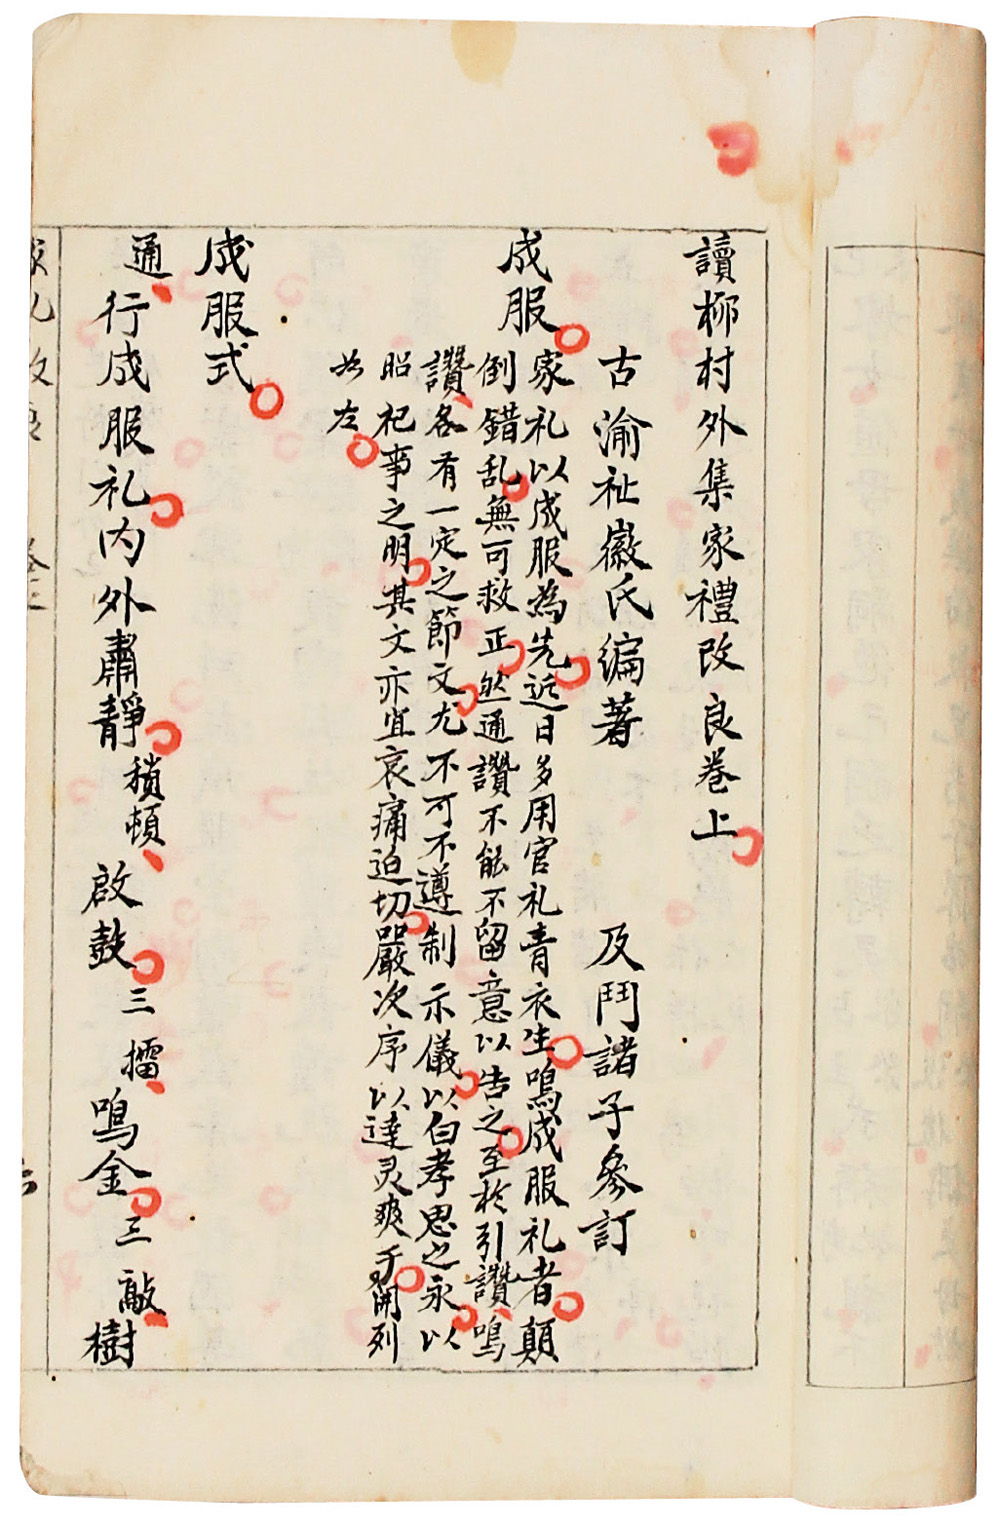 讀柳村外集家禮改良卷上
古渝祉徽氏編著 及鬥諸子參訂
成服
家礼以成服為先近日多用官礼青衣生鳴成服礼者顛
倒錯乱無可救正然通讚不能不留意以告之至於引讚鳴
讚各有一定之節文尤不可不遵制示儀以白孝思之永以
昭祀事之明其文亦宜哀痛迫切嚴次序以達灵爽于開列
如左
成服式
通行成服礼内外肅靜稽頓啟鼓三擂鳴金三敲樹